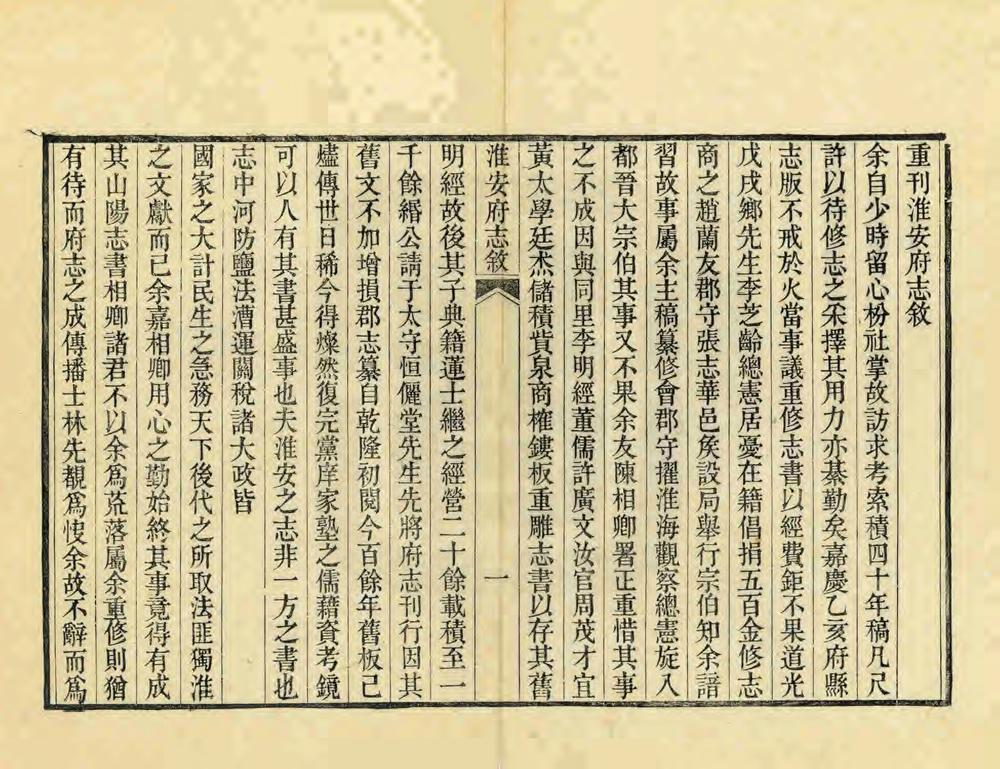 重刊淮安府志敘
余自少時留心枌社掌故訪求考索積四十年稿凡尺
許以待修志之采擇其用力亦綦勤矣嘉慶乙亥府縣
志版不戒於火當事議重修志書以經費鉅不果道光
戊戌鄉先生李芝齡總憲居憂在籍倡捐五百金修志
商之趙蘭友郡守張志華邑矦設局舉行宗伯知余諳
習故事屬余主稿纂修會郡守擢淮海觀察總憲旋入
都晉大宗伯其事又不果余友陳相卿署正重惜其事
之不成因與同里李明經董儒許廣文汝官周茂才宜
黃太學廷杰儲積貲泉商榷鏤板重雕志書以存其舊
淮安府志敘
一
明經故後其子典籍蓮士繼之經營二十餘載積至一
千餘緡公請于太守恒儷堂先生先將府志刊行因其
舊文不加增損郡志纂自乾隆初閱今百餘年舊板已
燼傳世日稀今得燦然復完黨庠家塾之儒藉資考鏡
可以人有其書甚盛事也夫淮安之志非一方之書也
志中河防鹽法漕運關稅諸大政皆
國家之大計民生之急務天下後代之所取法匪獨淮
之文獻而已余嘉相卿用心之勤始終其事竟得有成
其山陽志書相卿諸君不以余爲荒落屬余重修則猶
有待而府志之成傳播士林先覩爲快余故不辭而爲